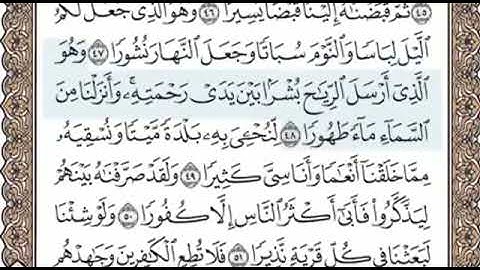 ٤٥ ثُمَّ قَبَضْنَٰهُ إِلَيْنَا قَبْضًا يَسِيرًا ٤٦ وَهُوَ ٱلَّذِى جَعَلَ لَكُمُ
ٱلَّيْلَ لِبَاسًا وَٱلنَّوْمَ سُبَاتًا وَجَعَلَ ٱلنَّهَارَ نُشُورًا ٤٧ وَهُوَ
ٱلَّذِىٓ أَرْسَلَ ٱلرِّيَٰحَ بُشْرًۢا بَيْنَ يَدَىْ رَحْمَتِهِۦۚ وَأَنزَلْنَا مِنَ
ٱلسَّمَآءِ مَآءً طَهُورًا ٤٨ لِّنُحْـِۧىَ بِهِۦ بَلْدَةً مَّيْتًا وَنُسْقِيَهُۥ
مِمَّا خَلَقْنَآ أَنْعَٰمًا وَأَنَاسِىَّ كَثِيرًا ٤٩ وَلَقَدْ صَرَّفْنَٰهُ بَيْنَهُمْ
لِيَذَّكَّرُوا۟ فَأَبَىٰٓ أَكْثَرُ ٱلنَّاسِ إِلَّا كُفُورًا ٥٠ وَلَوْ شِئْنَا
لَبَعَثْنَا فِى كُلِّ قَرْيَةٍ نَّذِيرًا ٥١ فَلَا تُطِعِ ٱلْكَٰفِرِينَ وَجَٰهِدْهُم